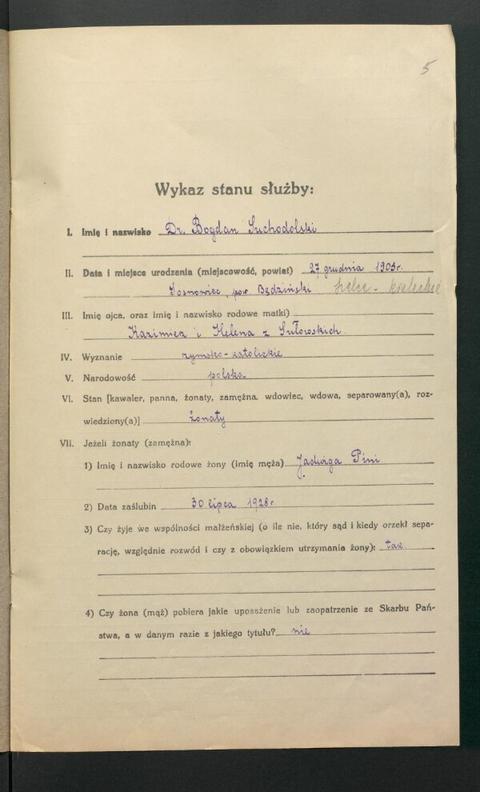 5
Wykaz stanu służby:
I. Imię i nazwisko Dr. Bogdan Suchodolski
II. Data i miejsce urodzenia (miejscowość, powiat) 27 grudnia 1903 r.
Sosnowiec, pow. Będziński kieleckie
III. Imię ojca, oraz imię i nazwisko rodowe matki)
Kazimierz i Helena z Sułowskich
IV. Wyznanie rzymsko-katolickie
V. Narodowość polska
VI. Stan [kawaler, panna, żonaty, zamężna, wdowiec, wdowa, separowany(a), roz-
wiedziony(a)] żonaty
VII. Jeżeli żonaty (zamężna):
1) Imię i nazwisko rodowe żony (imię męża) Jadwiga Pini
2) Data zaślubin 30 lipca 1928 r.
3) Czy żyje we wspólności małżeńskiej (o ile nie, który sąd i kiedy orzekł sepa-
rację, względnie rozwód i czy z obowiązkiem utrzymania żony): tak
4) Czy żona (mąż) pobiera jakie uposażenie lub zaopatrzenie ze Skarbu Pań-
stwa, a w danym razie z jakiego tytułu? nie